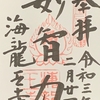 奉拝
令和三年
二月廿
妙智力
海龍王寺